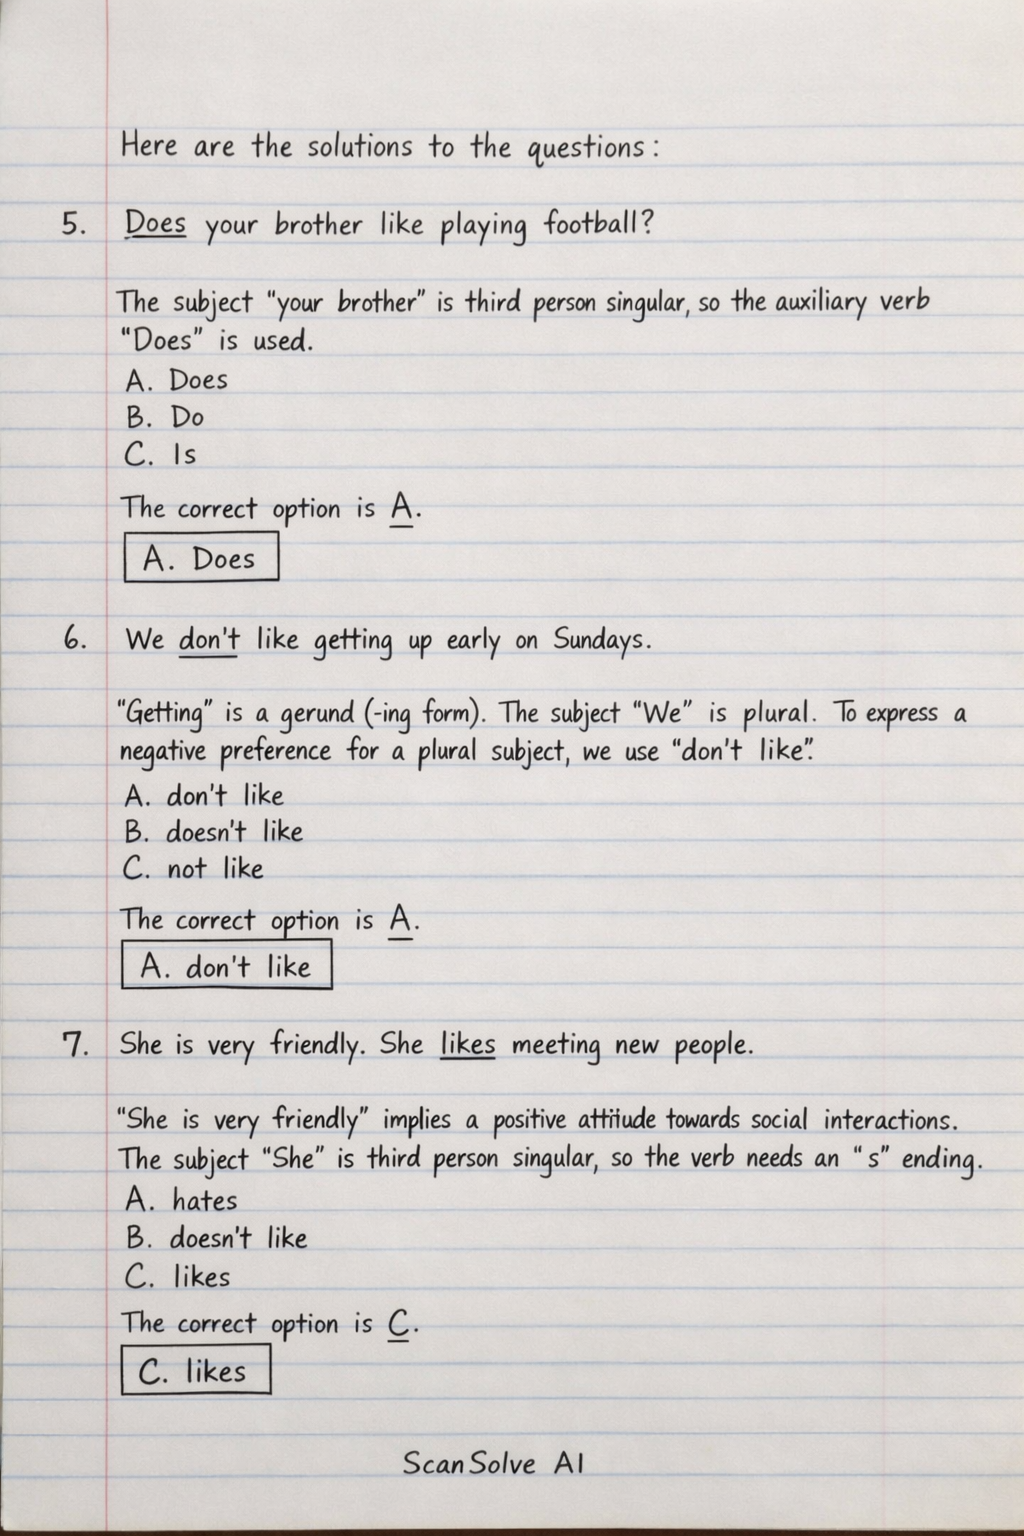 Here are the solutions to the questions:
5. Does your brother like playing football?
The subject "your brother" is third person singular, so the auxiliary verb
"Does" is used.
A. Does
B. Do
C. Is
The correct option is A.
A. Does
6. We don't like getting up early on Sundays.
"Getting" is a gerund (-ing form). The subject "We" is plural. To express a
negative preference for a plural subject, we use "don't like".
A. don't like
B. doesn't like
C. not like
The correct option is A.
A. don't like
7. She is very friendly. She likes meeting new people.
"She is very friendly" implies a positive attitude towards social interactions.
The subject "She" is third person singular, so the verb needs an "s" ending.
A. hates
B. doesn't like
C. likes
The correct option is C.
C. likes
ScanSolve AI